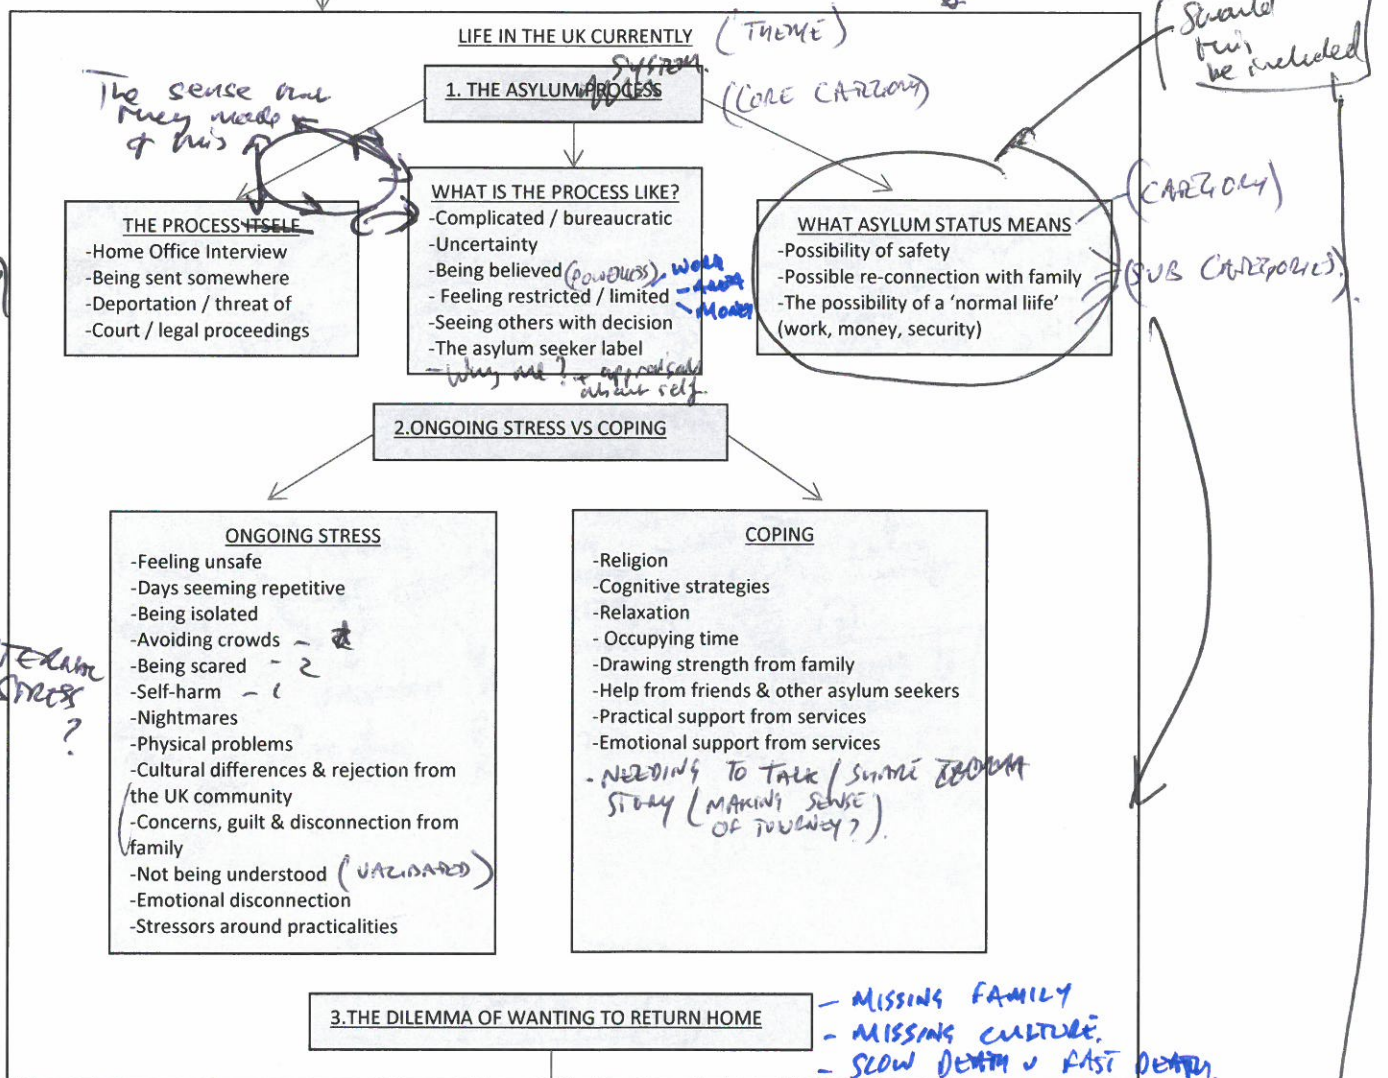 Should
this
be included
LIFE IN THE UK CURRENTLY (THEME)
SYSTEM.
1. THE ASYLUM PROCESS (CORE CATEGORY)
The sense that
they made
of this
THE PROCESS ITSELF
-Home Office Interview
-Being sent somewhere
-Deportation / threat of
-Court / legal proceedings
WHAT IS THE PROCESS LIKE?
-Complicated / bureaucratic
-Uncertainty
-Being believed (POWERLESS) - WORK
- Feeling restricted / limited
- MONEY
-Seeing others with decision
-The asylum seeker label
- Why me? + appraisals
about self.
WHAT ASYLUM STATUS MEANS
-Possibility of safety
-Possible re-connection with family
-The possibility of a 'normal liife'
(work, money, security)
(CATEGORY)
(SUB CATEGORIES).
2.ONGOING STRESS VS COPING
ONGOING STRESS
-Feeling unsafe
-Days seeming repetitive
-Being isolated
-Avoiding crowds -
-Being scared - 2
-Self-harm - 1
-Nightmares
-Physical problems
-Cultural differences & rejection from
the UK community
-Concerns, guilt & disconnection from
family
-Not being understood (VALIDATED)
-Emotional disconnection
-Stressors around practicalities
STRESS
?
COPING
-Religion
-Cognitive strategies
-Relaxation
- Occupying time
-Drawing strength from family
-Help from friends & other asylum seekers
-Practical support from services
-Emotional support from services
- NEEDING TO TALK / SHARE
STORY (MAKING SENSE
OF JOURNEY?).
3.THE DILEMMA OF WANTING TO RETURN HOME
- MISSING FAMILY
- MISSING CULTURE.
- SLOW DEATH v FAST DEATH.